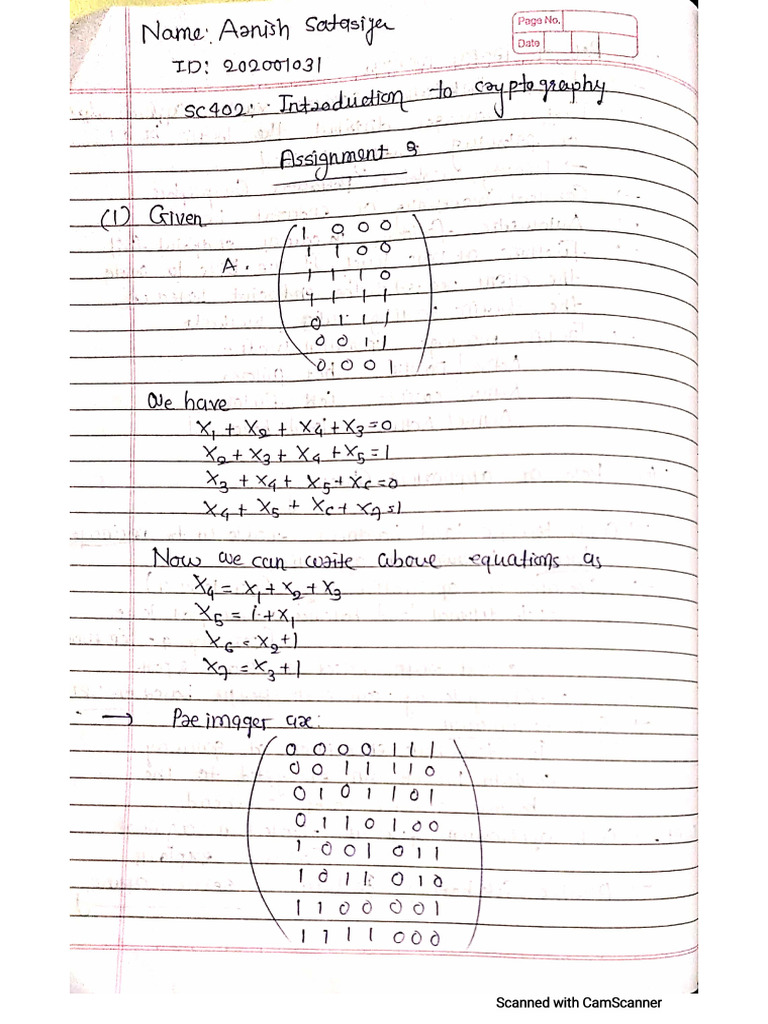 Name: Aanish Satasiya
Page No.
Date
ID: 202001031
SC402: Introduction to cryptography
Assignment 8
(1) Given
A.
1 0 0 0
1 1 0 0
1 1 1 0
1 1 1 1
0 1 1 1
0 0 1 1
0 0 0 1
We have
X₁ + X₂ + X₄ + X₃ = 0
X₂ + X₃ + X₄ + X₅ = 1
X₃ + X₄ + X₅ + X₆ = 0
X₄ + X₅ + X₆ + X₇ = 1
Now we can write above equations as
X₄ = X₁ + X₂ + X₃
X₅ = 1 + X₁
X₆ = X₂ + 1
X₇ = X₃ + 1
→ Preimager are:
0 0 0 0 1 1 1
0 0 1 1 1 1 0
0 1 0 1 1 0 1
0 1 1 0 1 0 0
1 0 0 1 0 1 1
1 0 1 1 0 1 0
1 1 0 0 0 0 1
1 1 1 1 0 0 0
Scanned with CamScanner